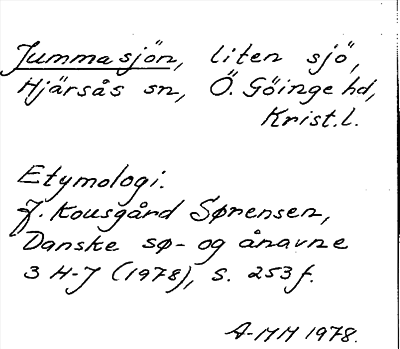 Jummasjön, liten sjö,
Hjärsås sn, Ö. Göinge hd,
Krist.l.
Etymologi.
J. Kousgård Sørensen,
Danske sø- og ånavne
3 H-J (1978), s. 253f.
A-MM 1978.